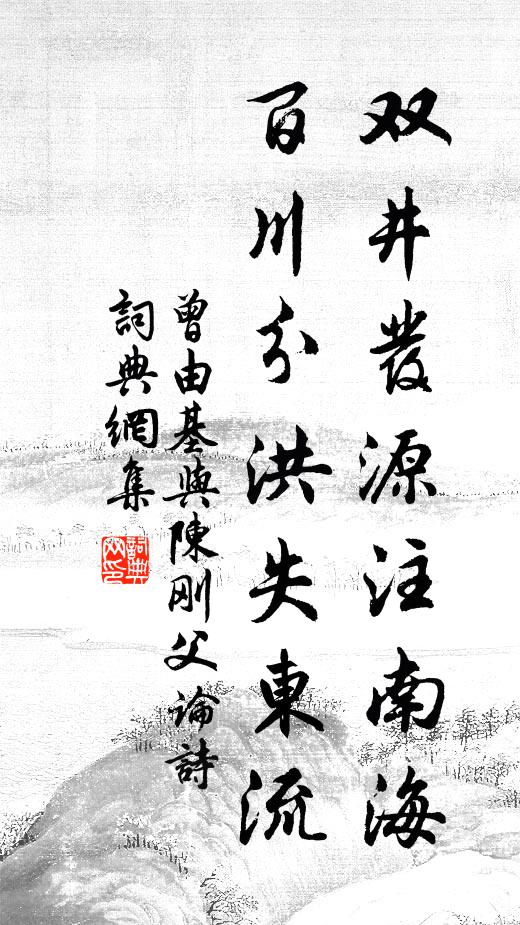 双井發源注南海
百川分洪失東流
曾由基與陳刚父論詩
詞典網集
詞典網印